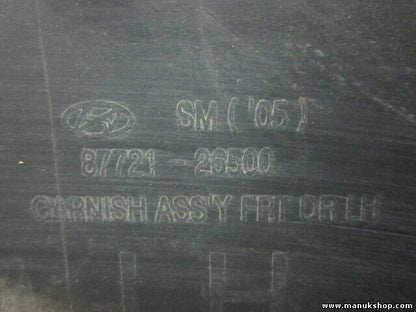 SM ( '05 )
87721-26500
GARNISH ASS'Y FRT DR LH
LH
www.manukshop.com